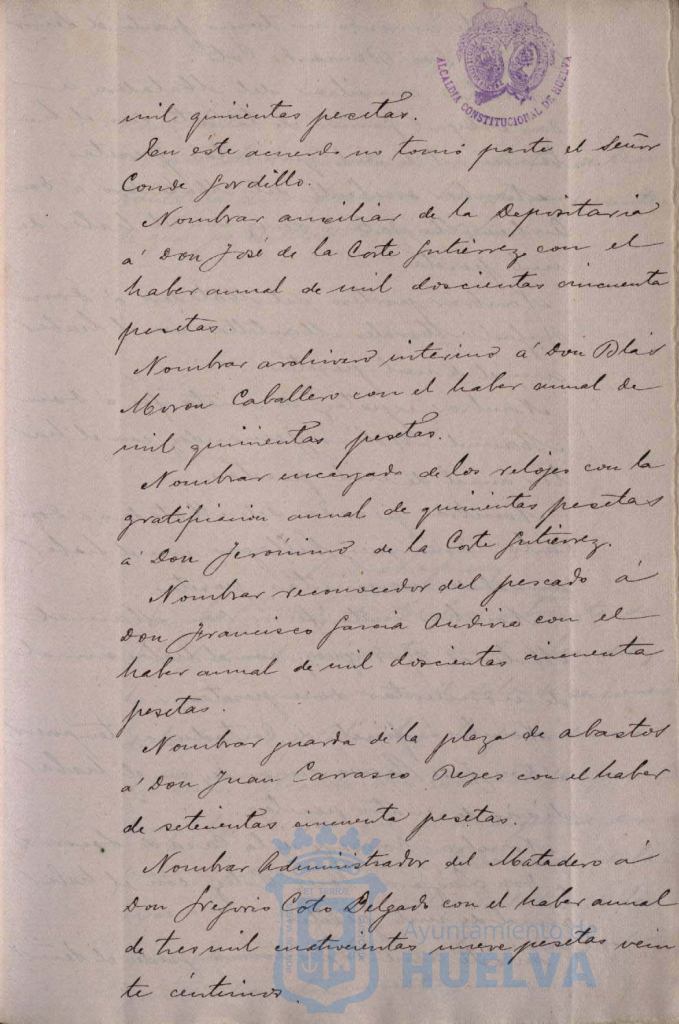 ALCALDIA CONSTITUCIONAL DE HUELVA
mil quinientas pesetas.
En éste acuerdo no tomó parte el Señor
Conde Gordillo.
Nombrar auxiliar de la Depositaria
á Don José de la Corte Gutiérrez, con el
haber anual de mil doscientas cincuenta
pesetas.
Nombrar archivero interino á Don Blás
Moron Caballero con el haber anual de
mil quinientas pesetas.
Nombrar encargado de los relojes con la
gratificacion anual de quinientas pesetas
á Don Jerónimo de la Corte Gutiérrez.
Nombrar reconocedor del pescado á
Don Francisco Garcia con el
haber anual de mil doscientas cincuenta
pesetas.
Nombrar guarda de la plaza de abastos
á Don Juan Carrasco Reyes con el haber
de setecientas cincuenta pesetas.
Nombrar Administrador del Matadero á
Don Gregorio Coto Delgado con el haber anual
de tres mil cuatrocientas nueve pesetas vein
te céntimos.
Ayuntamiento de
HUELVA